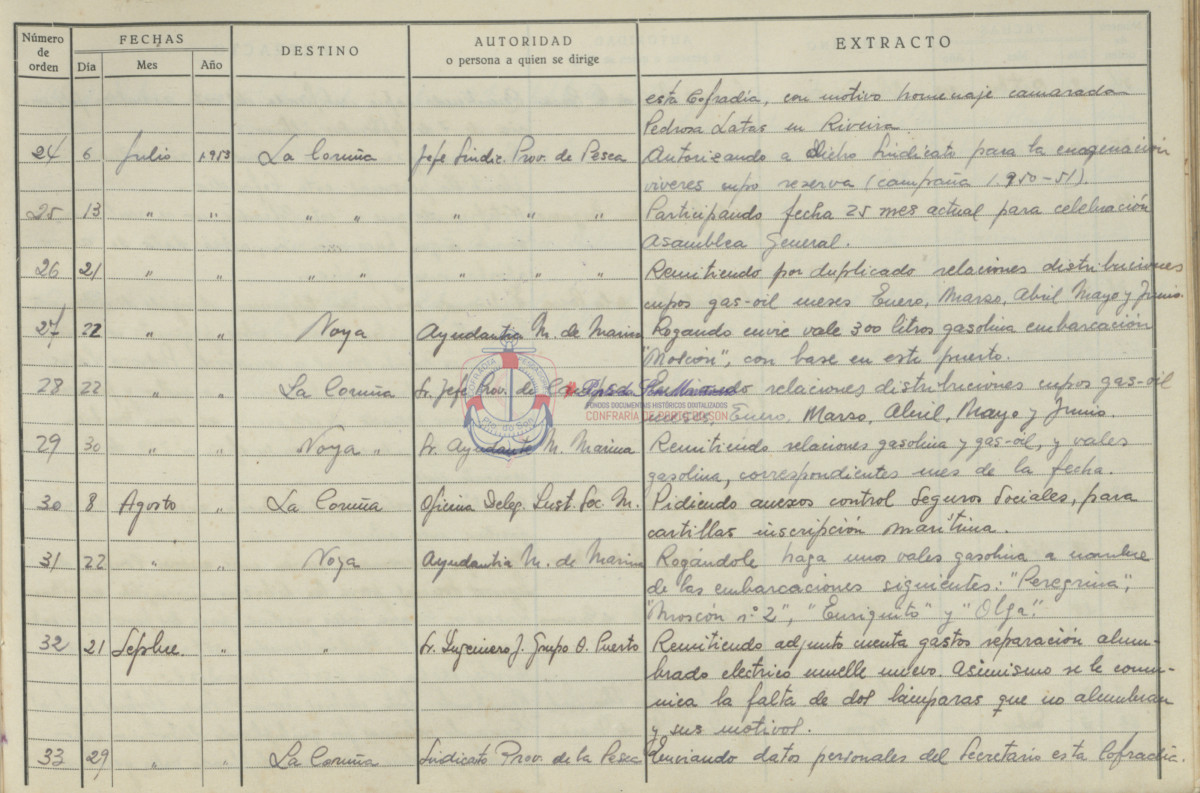 Número de orden FECHAS DESTINO AUTORIDAD o persona a quien se dirige EXTRACTO
Día Mes Año
esta Cofradía, con motivo homenaje camarada
Pedrosa Latas en Riveira
24 6 Julio 1.953 La Coruña Jefe Sindic. Prov. de Pesca Autorizando a Dicho Sindicato para la enagenación
viveres cupo reserva (campaña 1.950-51).
25 13 " " " " " " " Participando fecha 25 mes actual para celebración
Asamblea General.
26 21 " " " " " " " Remitiendo por duplicado relaciones distribuciones
cupos gas-oil meses Enero, Marzo, Abril Mayo y Junio.
27 22 " " Noya Ayudantia M. de Marina Rogando envie vale 300 litros gasolina embarcación
"Moscón", con base en este puerto.
28 22 " " La Coruña Sr. Jefe Prov. de relaciones distribuciones cupos gas-oil
meses, Enero, Marzo, Abril, Mayo y Junio.
29 30 " " Noya " Sr. Ayudante M. Marina Remitiendo relaciones gasolina y gas-oil, y vales
gasolina, correspondientes mes de la fecha.
30 8 Agosto " La Coruña Oficina Deleg. Inst. Soc. M. Pidiendo anexos control Seguros Sociales, para
cartillas inscripción marítima.
31 22 " " Noya Ayudantia M. de Marina Rogándole haga unos vales gasolina a nombre
de las embarcaciones siguientes: "Peregrina",
"Moscón nº 2", "Enriquito" y "Olga".
32 21 Sepbre. " " Sr. Ingeniero J. Grupo O. Puerto Remitiendo adjunto cuenta gastos reparación alum-
brado electrico muelle nuevo. Asimismo se le comu-
nica la falta de dos lámparas que no alumbran
y sus motivos.
33 29 " " La Coruña Sindicato Prov. de la Pesca Enviando datos personales del Secretario esta Cofradía.
FONDOS DOCUMENTAIS HISTÓRICOS DIXITALIZADOS
CONFRARÍA DE PORTO DO SON